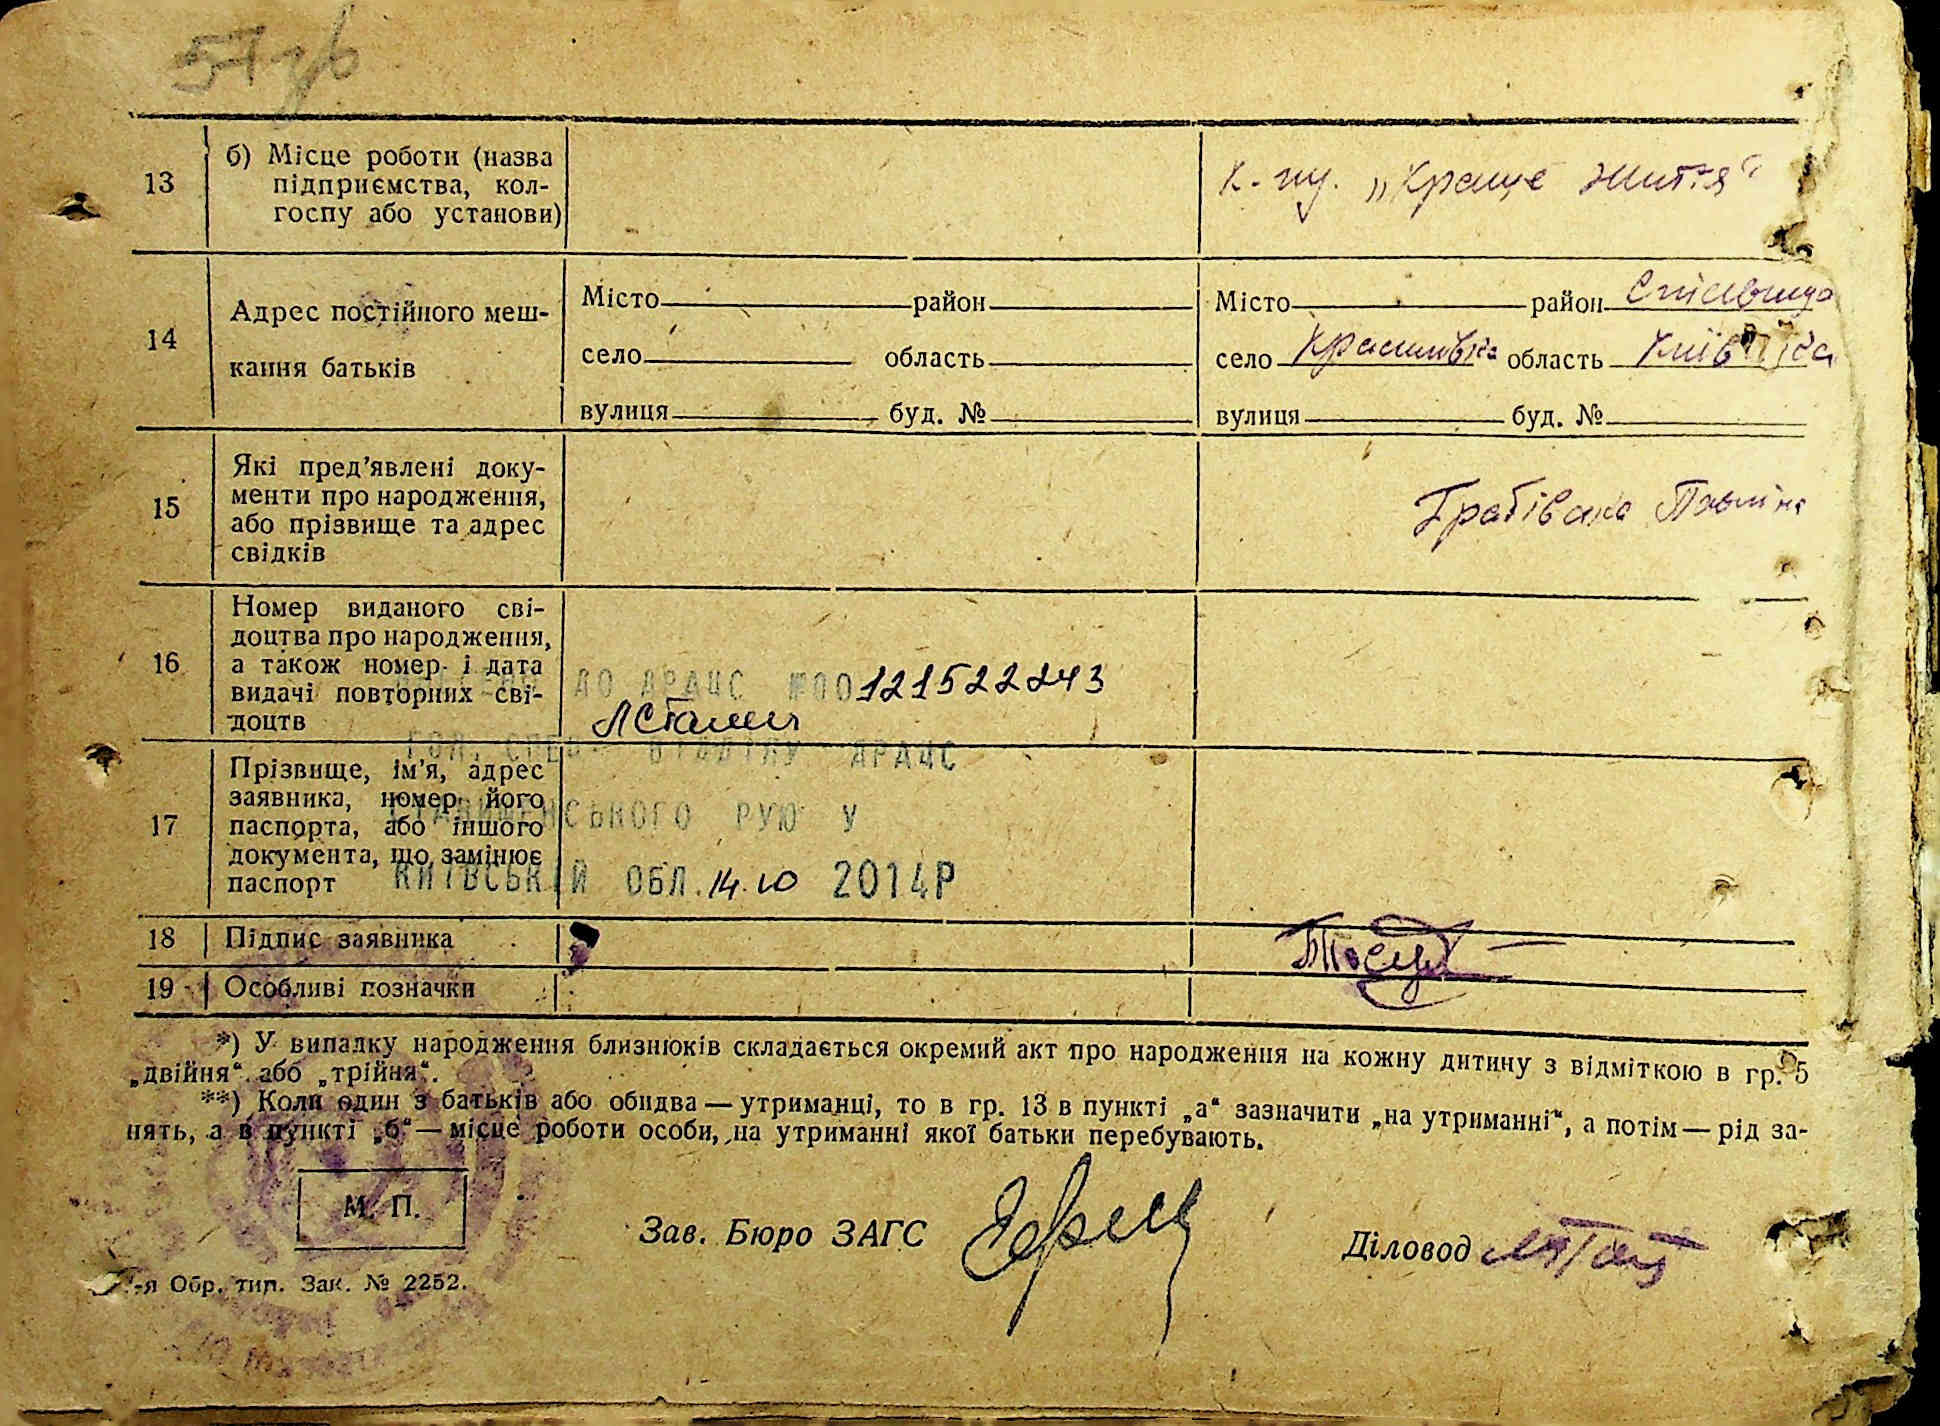 57 зв
13
б) Місце роботи (назва
підприємства, кол-
госпу або установи)
к-гу. „Краще життя“
14
Адрес постійного меш-
кання батьків
Місто район
село область
вулиця буд. №
Місто район
село область
вулиця буд. №
15
Які пред’явлені доку-
менти про народження,
або прізвище та адрес
свідків
16
Номер виданого сві-
доцтва про народження,
а також номер і дата
видачі повторних сві-
доцтв
ДО ДРАЦС №00121522243
17
Прізвище, ім’я, адрес
заявника, номер його
паспорта, або іншого
документа, що замінює
паспорт
ГОЛ. СПЕЦ. ВІДДІЛУ ДРАЦС
РУЮ У
КИЇВСЬКІЙ ОБЛ. 14.10 2014Р
18
Підпис заявника
19
Особливі позначки
*) У випадку народження близнюків складається окремий акт про народження на кожну дитину з відміткою в гр. 5
„двійня“ або „трійня“.
**) Коли один з батьків або обидва — утриманці, то в гр. 13 в пункті „а“ зазначити „на утриманні“, а потім — рід за-
нять, а в пункті „б“ — місце роботи особи, на утриманні якої батьки перебувають.
М. П.
Зав. Бюро ЗАГС
Діловод
-я Обр. тип. Зак. № 2252.